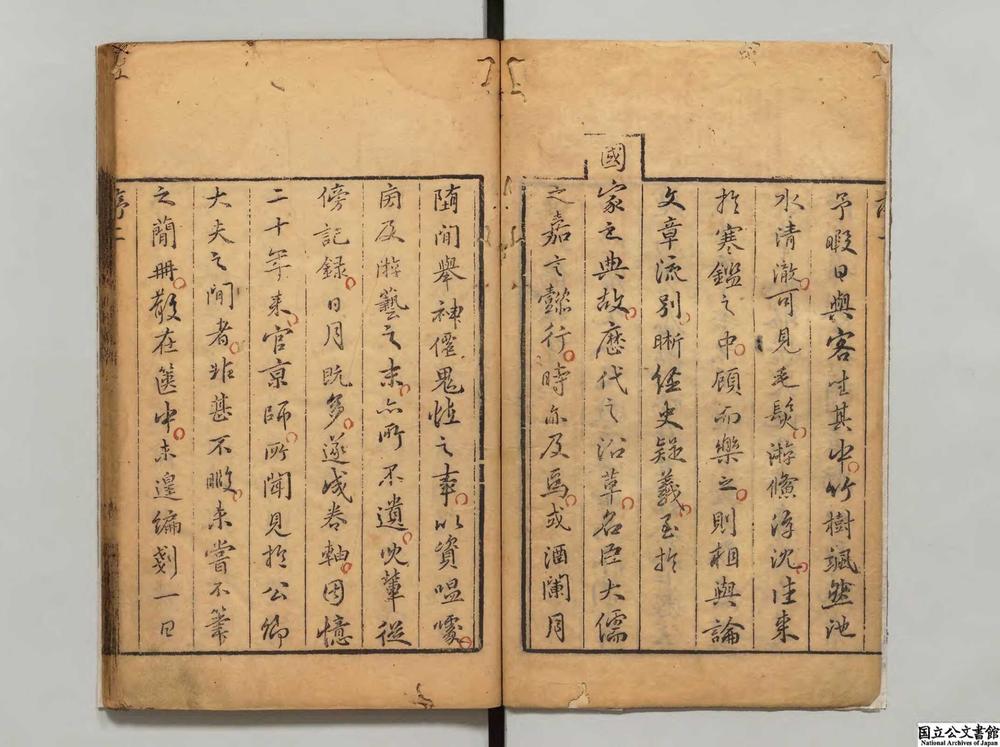 予暇日與客坐其中竹樹颯然池
水清澈可見毛髮游鯈浮沈往來
於寒鑑之中顧而樂之則相與論
文章流別晰經史疑義至於
國家之典故歷代之沿革名臣大儒
之嘉言懿行時亦及焉或酒闌月
墮間舉神僊鬼怪之事以資嗢噱
旁及游藝之末亦所不遺兒輩從
傍記録日月既多遂成卷軸因憶
二十年來官京師所聞見於公卿
大夫之間者非甚不暇未嘗不筆
之簡冊散在篋中未遑編剗一日
序二
国立公文書館
National Archives of Japan